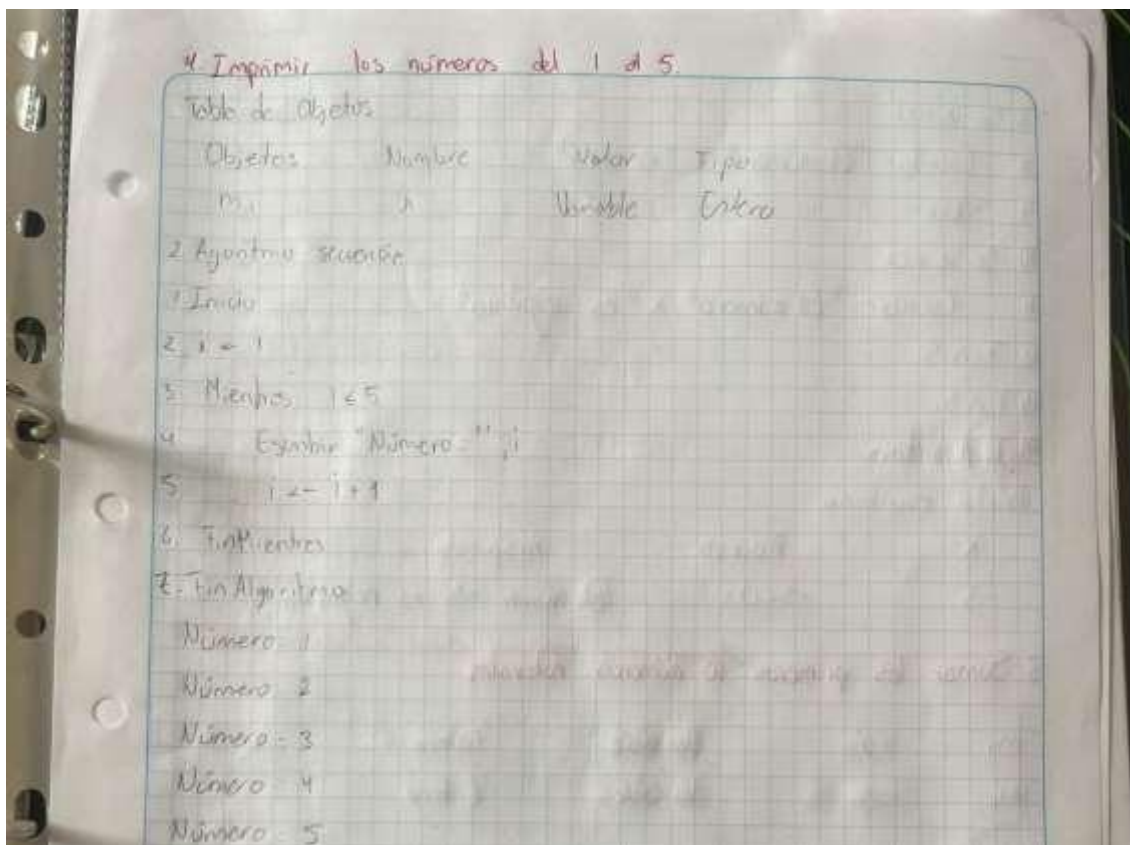 4. Imprimir los números del 1 al 5.
Tabla de Objetos
Objetos Nombre Valor Tipo
Variable Entero
2 Algoritmo
1 Inicio
2 i ← 1
3. Mientras i ≤ 5
4 Escribir "Número:", i
5 i ← i + 1
6. FinMientras
7. Fin Algoritmo
Número: 1
Número: 2
Número: 3
Número: 4
Número: 5